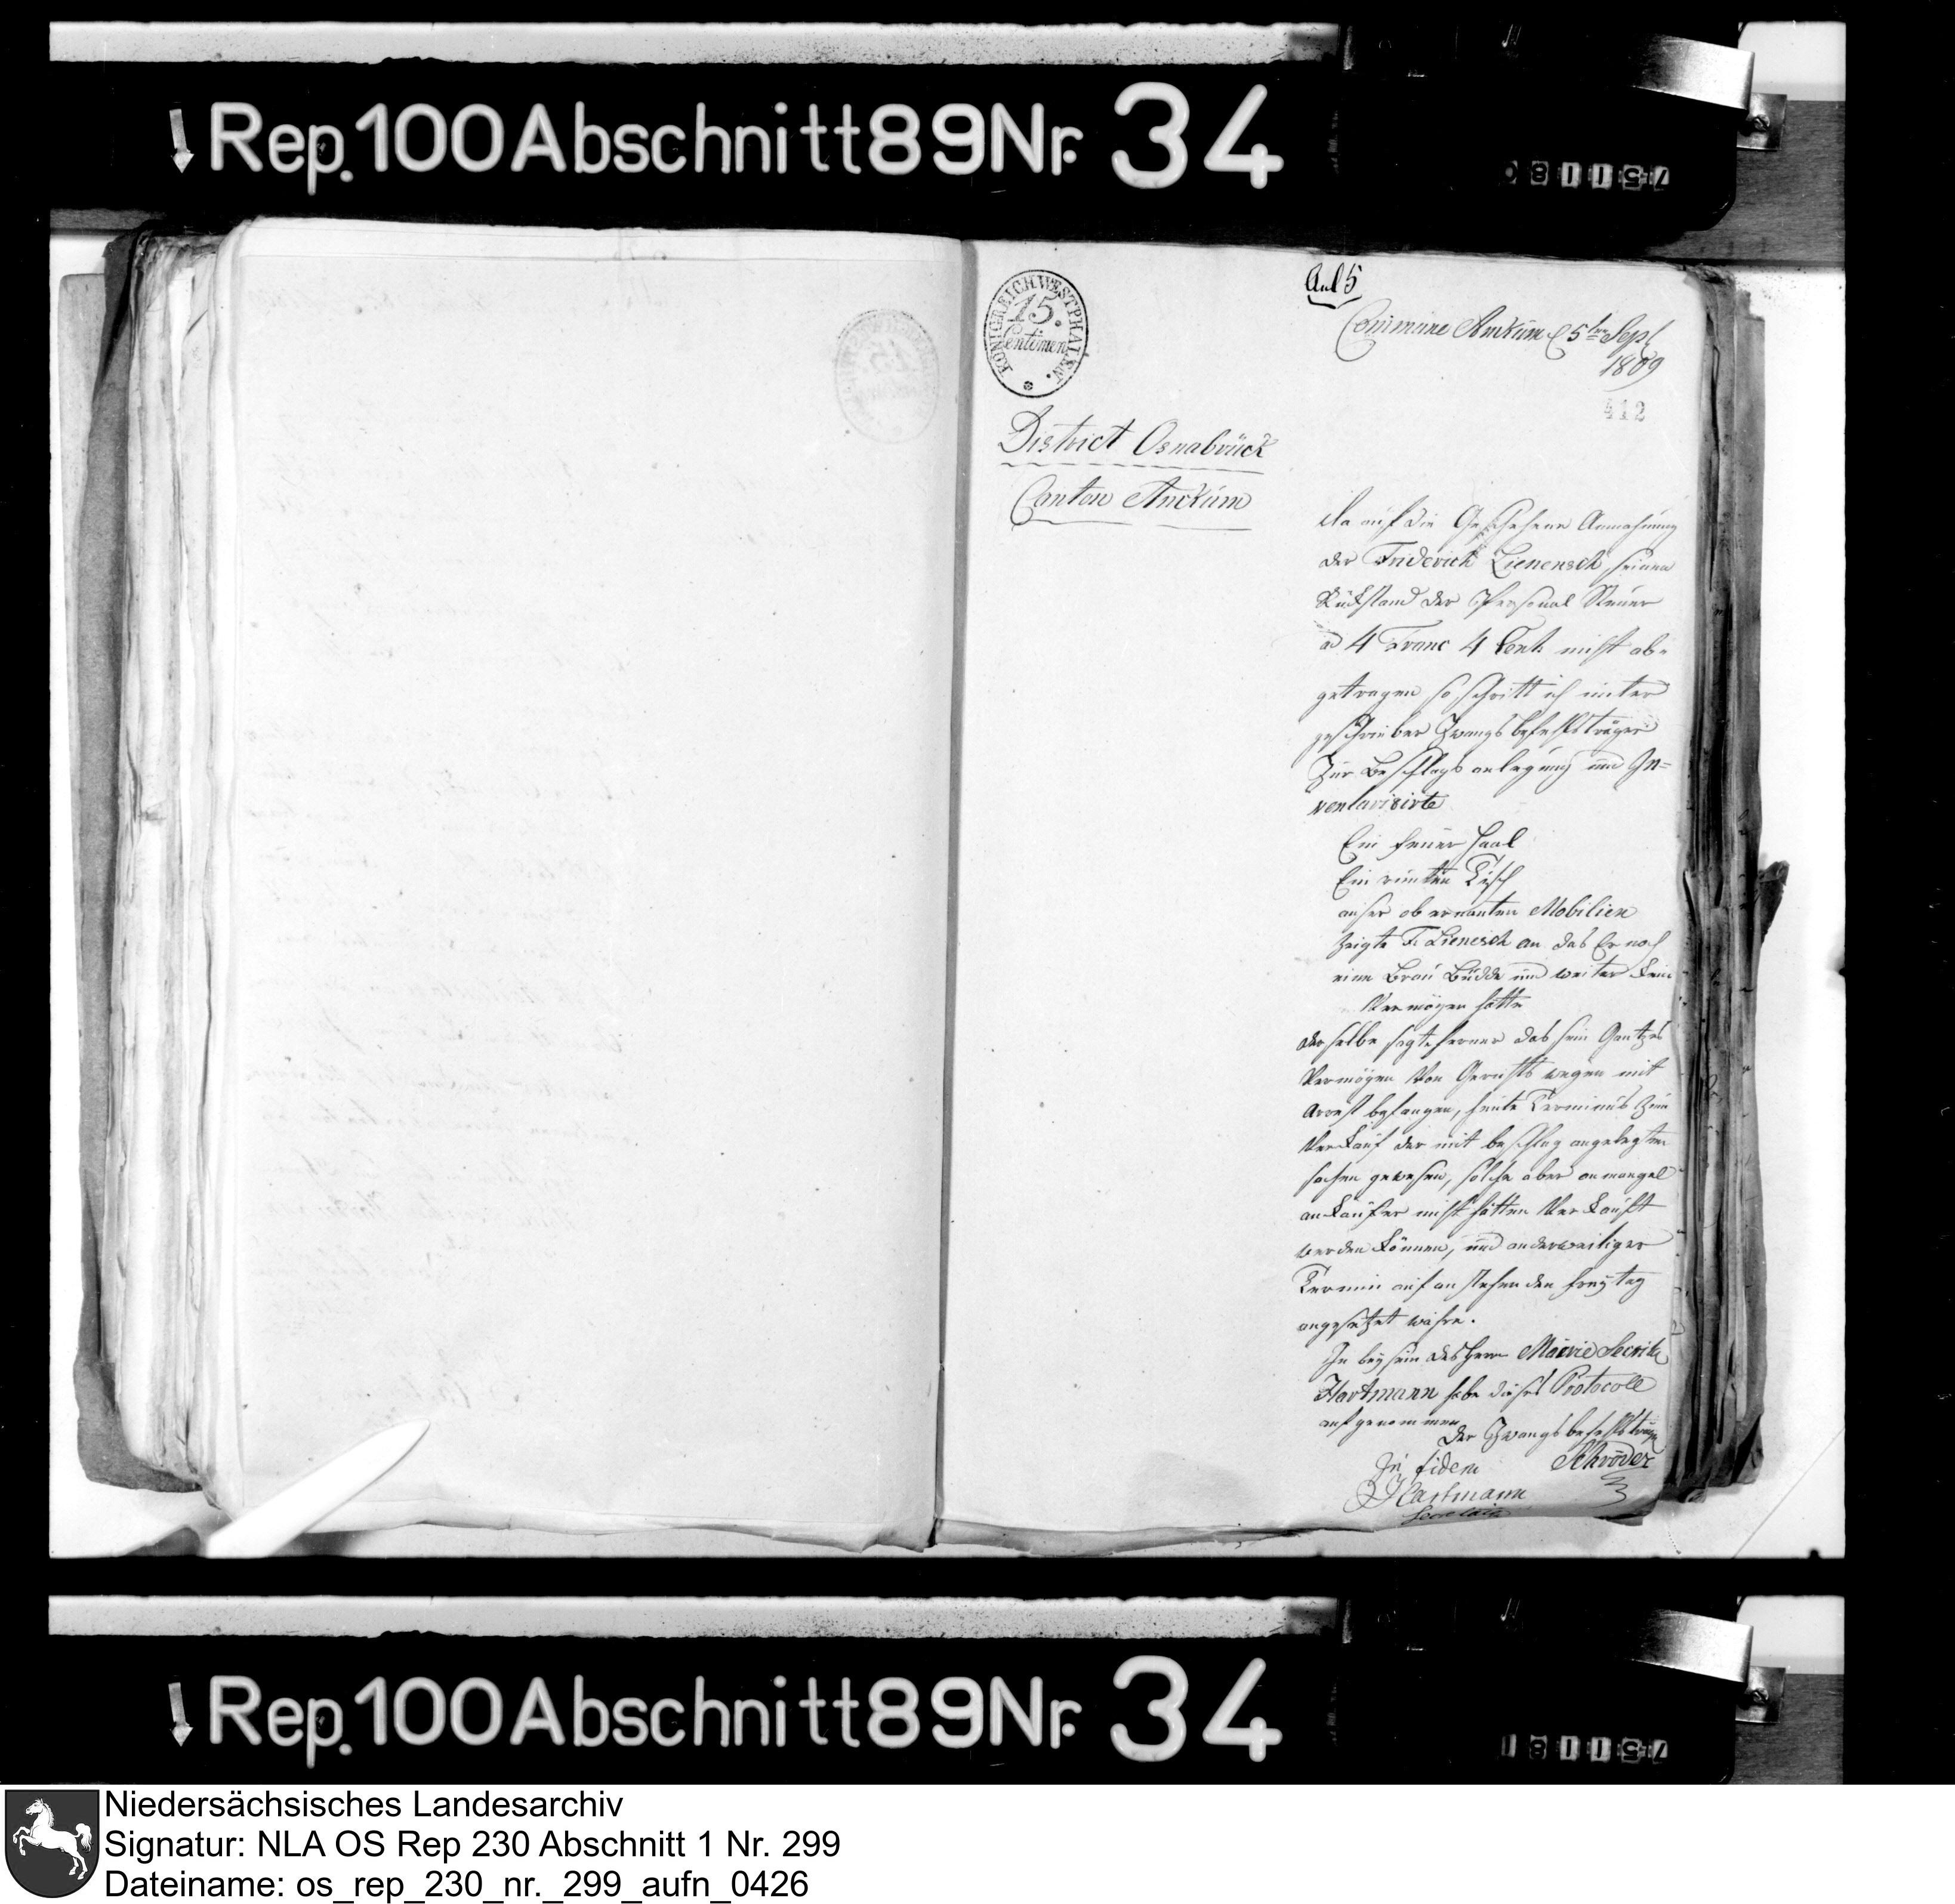 Rep. 100 Abschnitt 89 Nr. 34
751180
KÖNIGREICH WESTPHALEN.
15.
Centimen
Anl 5
Commune Anckum d 5ten Sept
1809
412
District Osnabrück
Canton Anckum
Da auf die Geschehene Anmahnung
der Friderich Lienensch seinen
Rückstand der Personal Steuer
ad 4 Franc 4 Cent. nicht ab-
getragen so schritt ich unter
geschrieber Zwangsbefehlsträger
Zur Beschlags anlegung und In-
ventarisirte
Ein feuer haal
Ein runten Tisch
auser ob ernanten Mobilien
Zeigte F. Lienesch an das Er noch
eine Brau Büdde und weiter kein
Vermögen hätte
derselbe sagte ferner das sein Gantzes
Vermögen von Gerichts wegen mit
Arrest befangen, heute Terminus Zum
Verkauf der mit beschlag angelegten
sachen gewesen, solche aber an mangel
an Käufer nicht hätten Verkauft
werden können, und anderweitiger
Termin auf anstehenden freytag
angesetzet wahre.
In beysein des Herrn Mairie Secrité
Hartmann habe dieses Protocoll
aufgenommen
der Zwangsbefehlsträger
In fidem Schröder
Hartmann
Secretair
Rep. 100 Abschnitt 89 Nr. 34
751181
Niedersächsisches Landesarchiv
Signatur: NLA OS Rep 230 Abschnitt 1 Nr. 299
Dateiname: os_rep_230_nr._299_aufn_0426